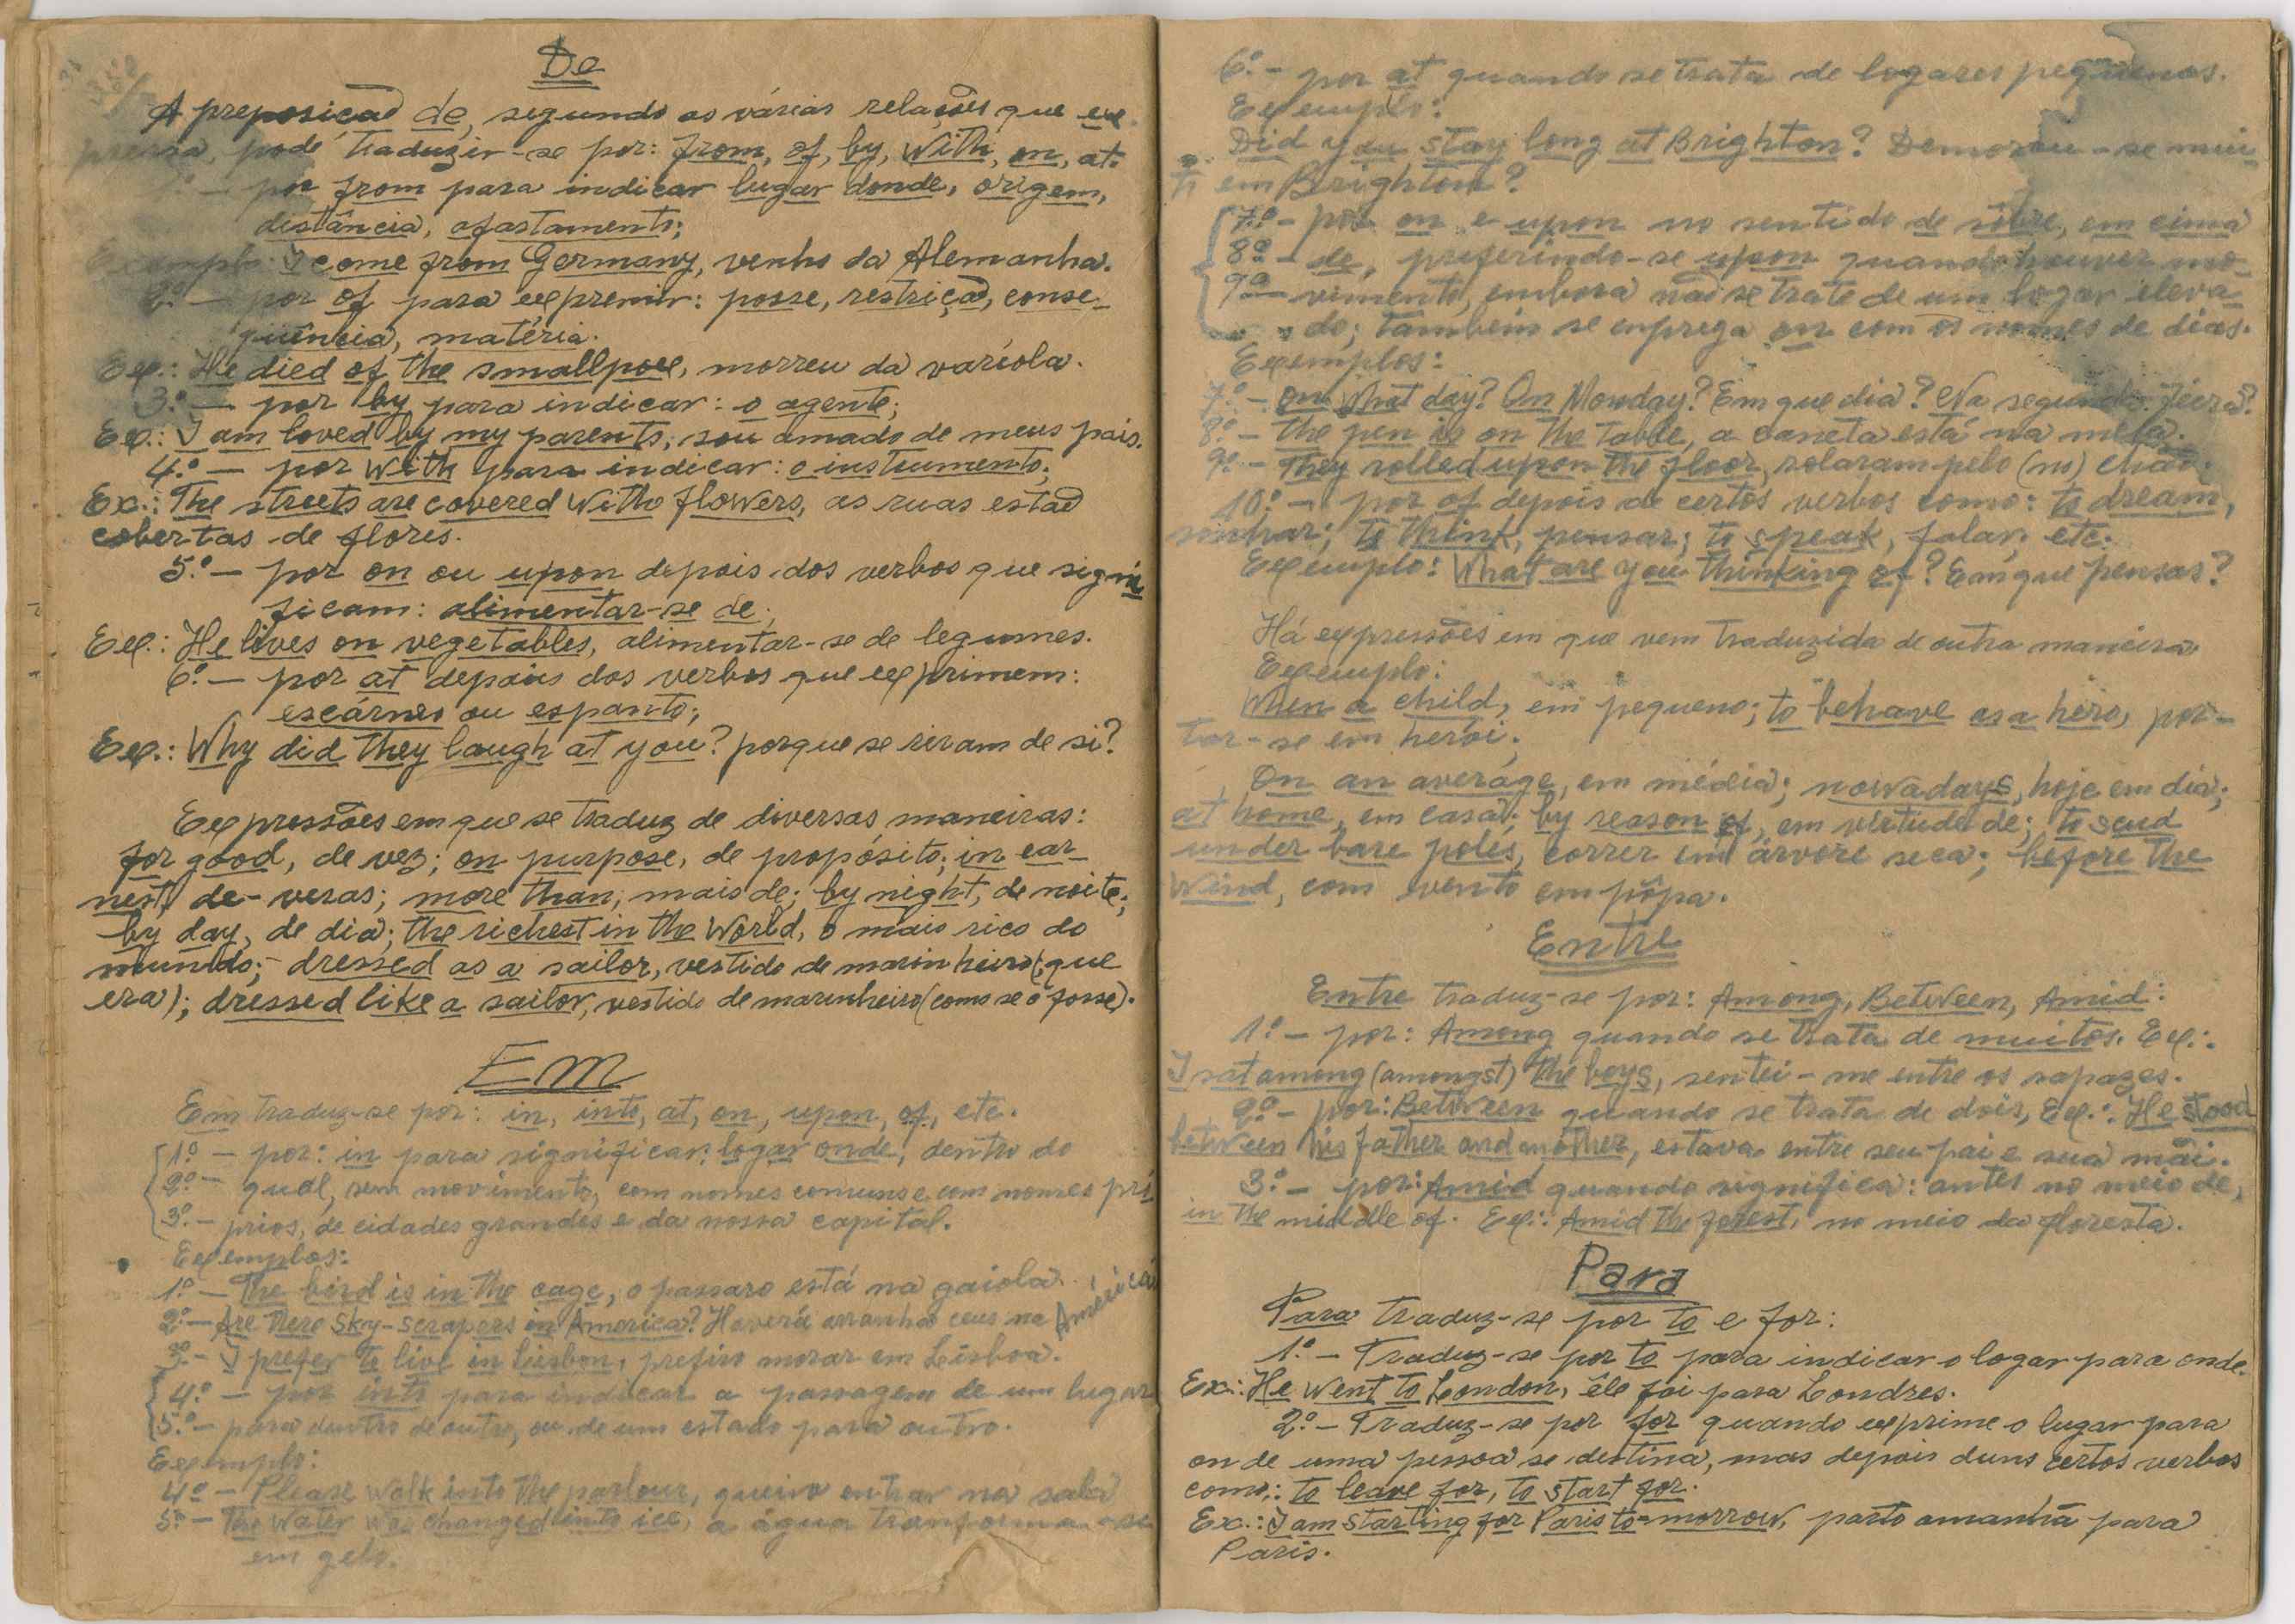 De
A preposição de, segundo as várias relações que ex
pressa, pode traduzir-se por: from, of, by, with, on, at.
— por from para indicar lugar donde, origem,
distância, afastamento;
Exemplo: I come from Germany, venho da Alemanha.
2.º — por of para exprimir: posse, restrição, conse-
qüência, matéria.
Ex.: He died of the smallpox, morreu da varíola.
3.º — por by para indicar: o agente;
Ex.: I am loved by my parents, sou amado de meus pais.
4.º — por with para indicar: o instrumento;
Ex.: The streets are covered with flowers, as ruas estão
cobertas de flores.
5.º — por on ou upon depois dos verbos que signi
ficam: alimentar-se de;
Ex.: He lives on vegetables, alimentar-se de legumes.
6.º — por at depois dos verbos que exprimem:
escárneo ou espanto;
Ex.: Why did they laugh at you? porque se riram de si?
Expressões em que se traduz de diversas maneiras:
for good, de vez; on purpose, de propósito; in ear-
nest, de-veras; more than, mais de; by night, de noite;
by day, de dia; the richest in the world, o mais rico do
mundo; dressed as a sailor, vestido de marinheiro (que
era); dressed like a sailor, vestido de marinheiro (como se o fosse).
Em
Em traduz-se por: in, into, at, on, upon, of, etc.
1.º — por: in para significar: logar onde, dentro do
2.º — qual, sem movimento, com nomes comuns e com nomes pró
3.º — prios, de cidades grandes e da nossa capital.
Exemplos:
1.º — The bird is in the cage, o passaro está na gaiola.
2.º — Are there sky-scrapers in America? Haverá arranha ceus na América
3.º — I prefer to live in Lisbon, prefiro morar em Lisboa.
4.º — por into para indicar a passagem de um lugar
5.º — para dentro de outro, ou de um estado para outro.
Exemplo:
4.º — Please walk into the parlour, queira entrar na sala
5.º — The water was changed into ice, a água transforma-se
em gelo.
6.º — por at quando se trata de logares pequenos.
Exemplo:
Did you stay long at Brighton? Demorou-se mui-
to em Brighton?
7.º — por on e upon no sentido de sôbre, em cima
8.º — de, preferindo-se upon quando houver mo-
9.º — vimento, embora não se trate de um logar eleva-
do; também se emprega on com os nomes de dias.
Exemplos:
7.º — On what day? On Monday? Em que dia? Na segunda feira?
8.º — The pen is on the table, a caneta está na mesa.
9.º — They rolled upon the floor, rolaram pelo (no) chão.
10.º — por of depois de certos verbos como: to dream,
sonhar; to think, pensar; to speak, falar; etc.
Exemplo: What are you thinking of? Em que pensas?
Há expressões em que vem traduzida de outra maneira
Exemplo:
When a child, em pequeno; to behave as a hero, por-
tar-se em herói.
On an average, em média; nowadays, hoje em dia;
at home, em casa; by reason of, em virtude de; to scud
under bare poles, correr em árvore seca; before the
wind, com vento em pôpa.
Entre
Entre traduz-se por: Among, Between, Amid:
1.º — por: Among quando se trata de muitos. Ex.:
I sat among (amongst) the boys, sentei-me entre os rapazes.
2.º — por: Between quando se trata de dois, Ex.: He stood
between his father and mother, estava entre seu pai e sua mãi.
3.º — por: Amid quando significa: antes no meio de,
in the middle of. Ex.: Amid the forest, no meio da floresta.
Para
Para traduz-se por to e for:
1.º — Traduz-se por to para indicar o logar para onde.
Ex.: He went to London, êle foi para Londres.
2.º — Traduz-se por for quando exprime o lugar para
onde uma pessoa se destina, mas depois duns certos verbos
como: to leave for, to start for.
Ex.: I am starting for Paris to-morrow, parto amanhã para
Paris.